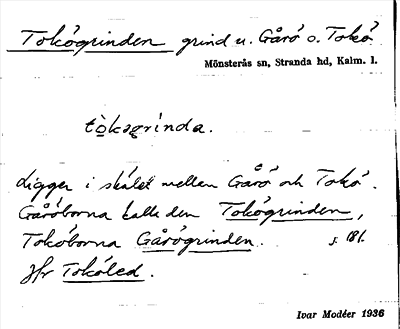 Tokögrinden grind u. Gårö o. Tokö.
Mönsterås sn, Stranda hd, Kalm. l.
tò̱kəgrínda.
Ligger i skälet mellan Gårö och Tokö.
Gåröborna kalla den Tokögrinden,
Toköborna Gårögrinden. s. 181.
Jfr Toköled.
Ivar Modéer 1936